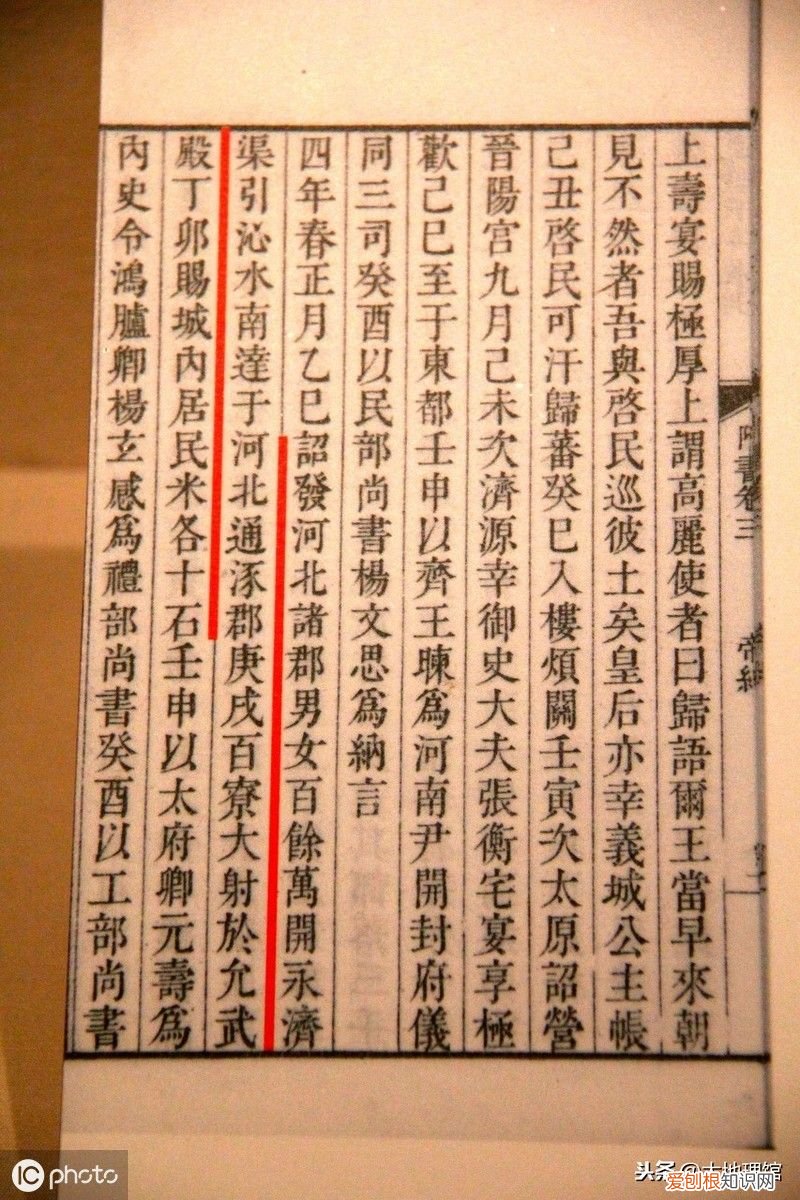 上壽宴賜極厚上謂高麗使者曰歸語爾王當早來朝
見不然者吾與啓民巡彼土矣皇后亦幸義城公主帳
己丑啓民可汗歸蕃癸巳入樓煩關壬寅次太原詔營
晉陽宮九月己未次濟源幸御史大夫張衡宅宴享極
歡己巳至于東都壬申以齊王暕爲河南尹開封府儀
同三司癸酉以民部尚書楊文思爲納言
四年春正月乙巳詔發河北諸郡男女百餘萬開永濟
渠引沁水南達于河北通涿郡庚戌百寮大射於允武
殿丁卯賜城內居民米各十石壬申以太府卿元壽爲
內史令鴻臚卿楊玄感爲禮部尚書癸酉以工部尚書
書卷三
帝紀
IC photo
头条@大地理馆
爱刨根知识网